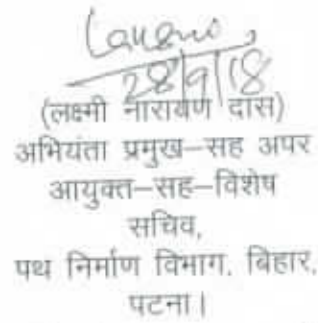 28/9/18
(लक्ष्मी नारायण दास)
अभियंता प्रमुख–सह अपर
आयुक्त–सह–विशेष
सचिव,
पथ निर्माण विभाग, बिहार,
पटना।